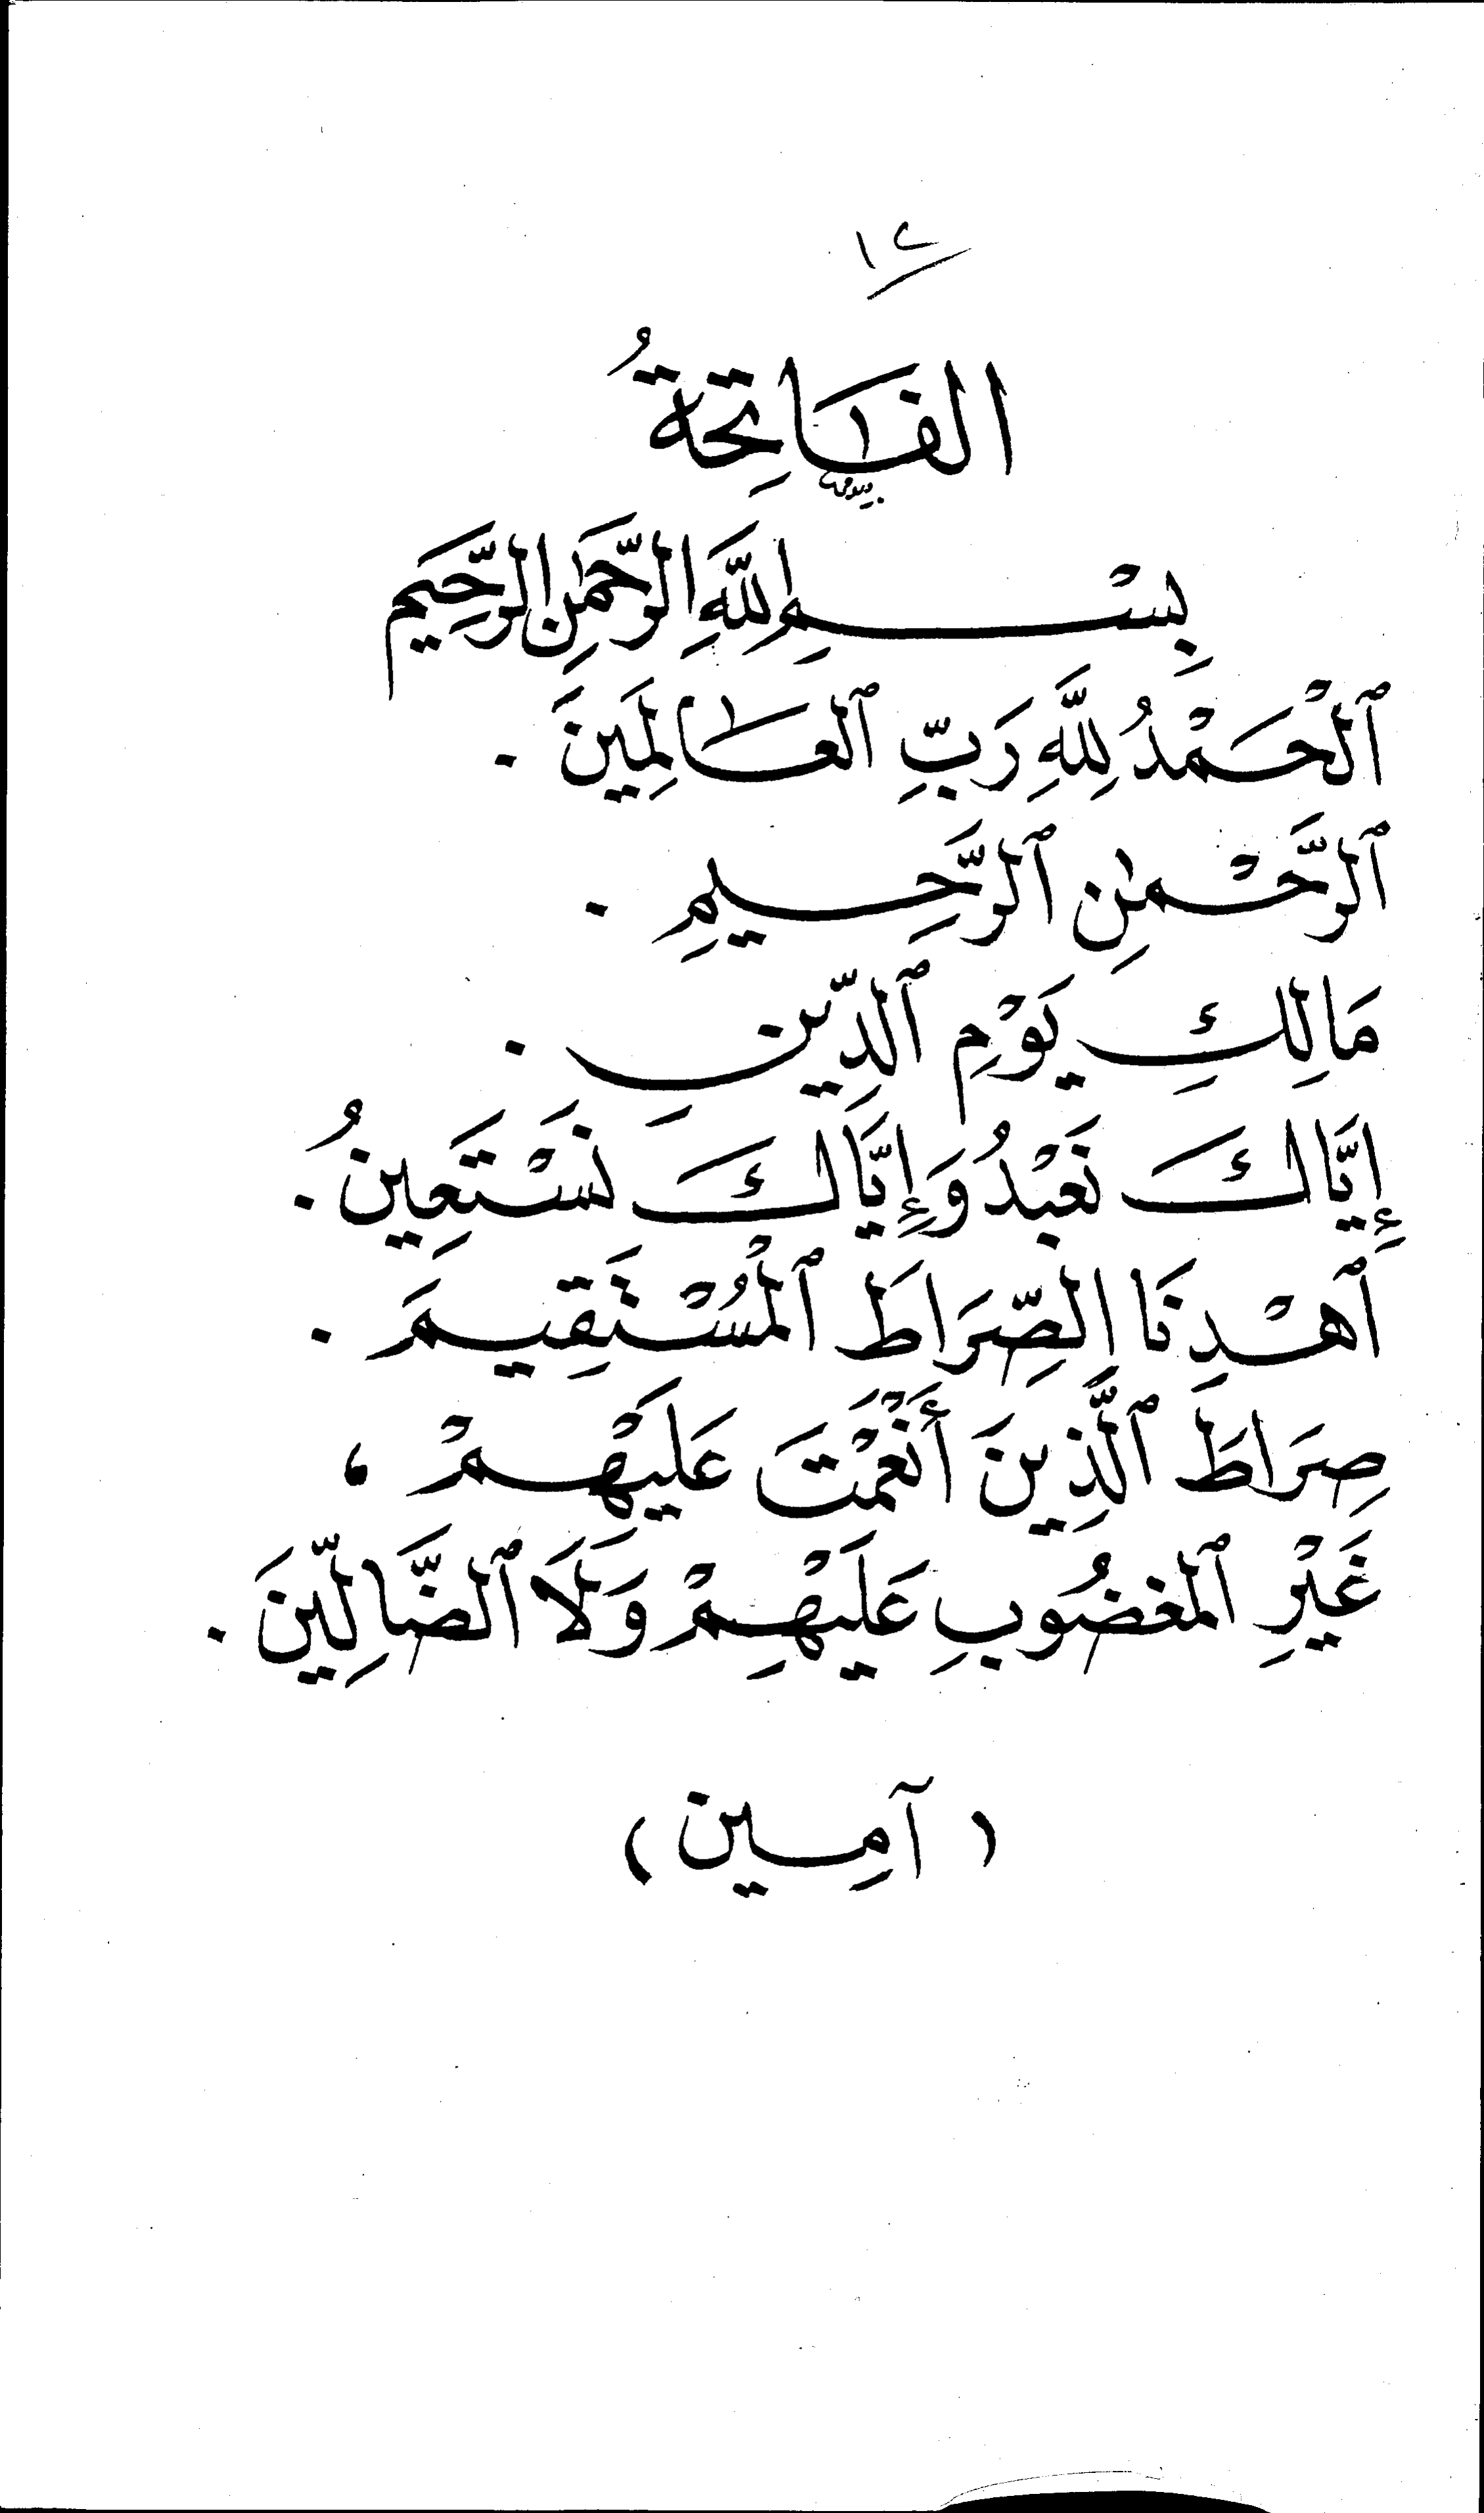 ١٤
الفَاتِحَةُ
بِسْمِ اللَّهِ الرَّحْمَٰنِ الرَّحِيمِ
ٱلْحَمْدُ لِلَّهِ رَبِّ ٱلعَٰالَمِينَ .
ٱلرَّحْمٰنِ ٱلرَّحِيمِ .
مَالِكِ يَوْمِ ٱلدِّينِ .
إِيَّاكَ نَعْبُدُ وَإِيَّاكَ نَسْتَعِينُ .
ٱهْدِنَا الصِّرَاطَ ٱلْمُسْتَقِيمَ .
صِرَاطَ ٱلَّذِينَ أَنْعَمْتَ عَلَيْهِمْ ،
غَيْرِ ٱلمَغضُوبِ عَلَيْهِمْ وَلَا ٱلضَّالِّينَ .
( آمِين )